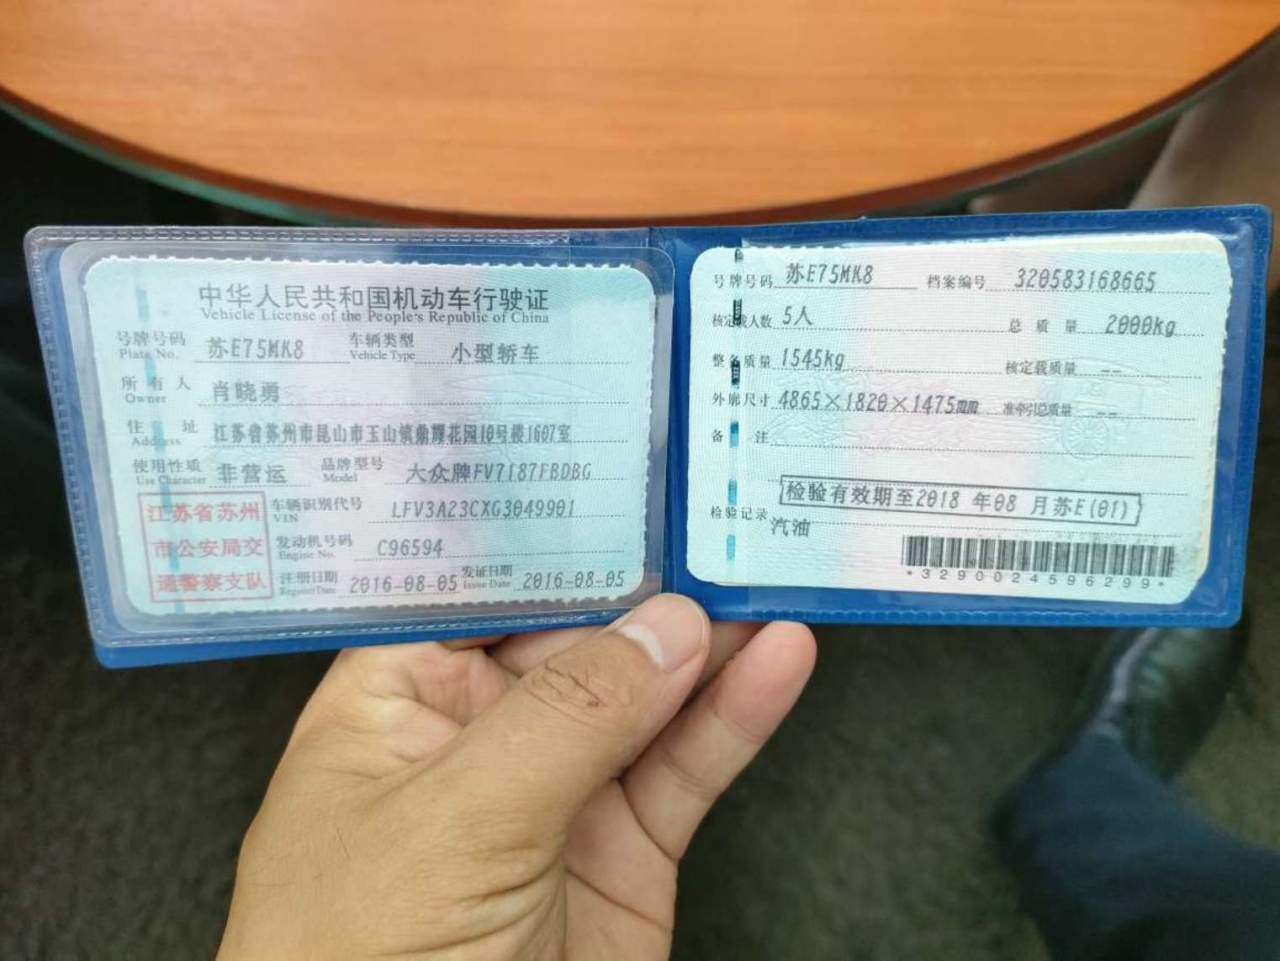 中华人民共和国机动车行驶证
Vehicle License of the People's Republic of China
号牌号码 苏E75MK8 车辆类型 小型轿车
Plate No. Vehicle Type
所有人 肖晓勇
Owner
住址 江苏省苏州市昆山市玉山镇鼎耀花园10号楼1607室
Address
使用性质 非营运 品牌型号 大众牌FV7187FBDBG
Use Character Model
江苏省苏州
市公安局交
通警察支队
车辆识别代号 LFV3A23CXG3049901
VIN
发动机号码 C96594
Engine No.
注册日期 2016-08-05 发证日期 2016-08-05
Register Date Issue Date
号牌号码 苏E75MK8 档案编号 320583168665
核定载人数 5人 总质量 2000kg
整备质量 1545kg 核定载质量 --
外廓尺寸 4865×1820×1475mm 准牵引总质量 --
备注
检验有效期至2018 年08 月苏E(01)
检验记录
汽油
*3290024596299*